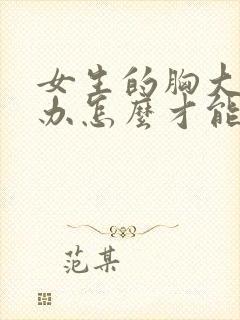 女生的胸大
办怎麼才能
范某